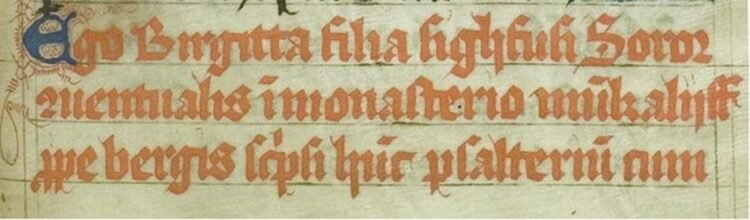 Ego Birgitta filia ſighfuſi Soror
ꝯuentualis ī monaſterio mūkalijff
ꝓpe bergis ſcͥpſi hūc pſalteriū cum